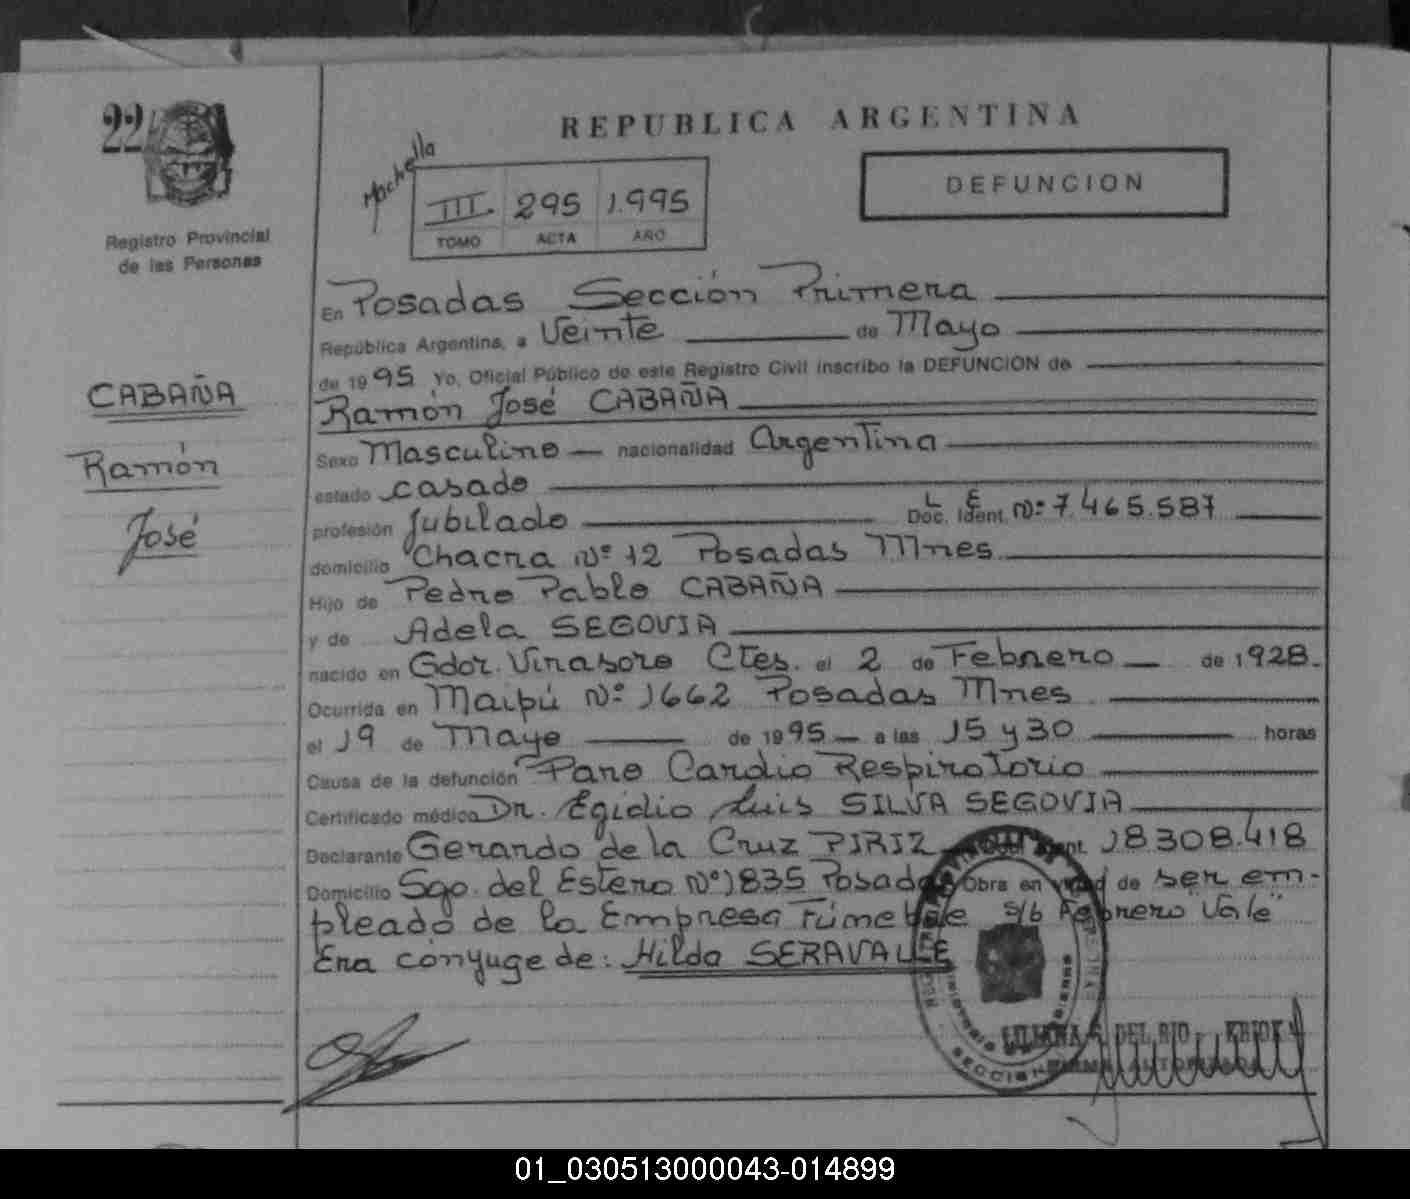 22
REPUBLICA ARGENTINA
DEFUNCION
III 295 1.995
TOMO ACTA AÑO
Registro Provincial
de las Personas
CABAÑA
Ramón
José
En Posadas Sección Primera
República Argentina, a Veinte de Mayo
de 1995 Yo, Oficial Público de este Registro Civil inscribo la DEFUNCION de
Ramón José CABAÑA
Sexo Masculino nacionalidad Argentina
estado casado
L E
profesión Jubilado Doc. Ident. Nº 7.465.587
domicilio Chacra Nº 12 Posadas Mnes
Hijo de Pedro Pablo CABAÑA
y de Adela SEGOVIA
nacido en Gdor. Virasoro Ctes. el 2 de Febrero de 1928.
Ocurrida en Maipú Nº 1662 Posadas Mnes
el 19 de Mayo de 1995 a las 15 y 30 horas
Causa de la defunción Paro Cardio Respiratorio
Certificado médico Dr. Egidio Luis SILVA SEGOVIA
Declarante Gerardo de la Cruz PIRIZ 18308.418
Domicilio Sgo. del Estero Nº 1835 Posadas Obra en virtud de ser em-
pleado de la Empresa Fúnebre s/b Febrero "Vale"
Era cónyuge de: Hilda SERAVALLE
LILIANA DEL RIO
01_030513000043-014899